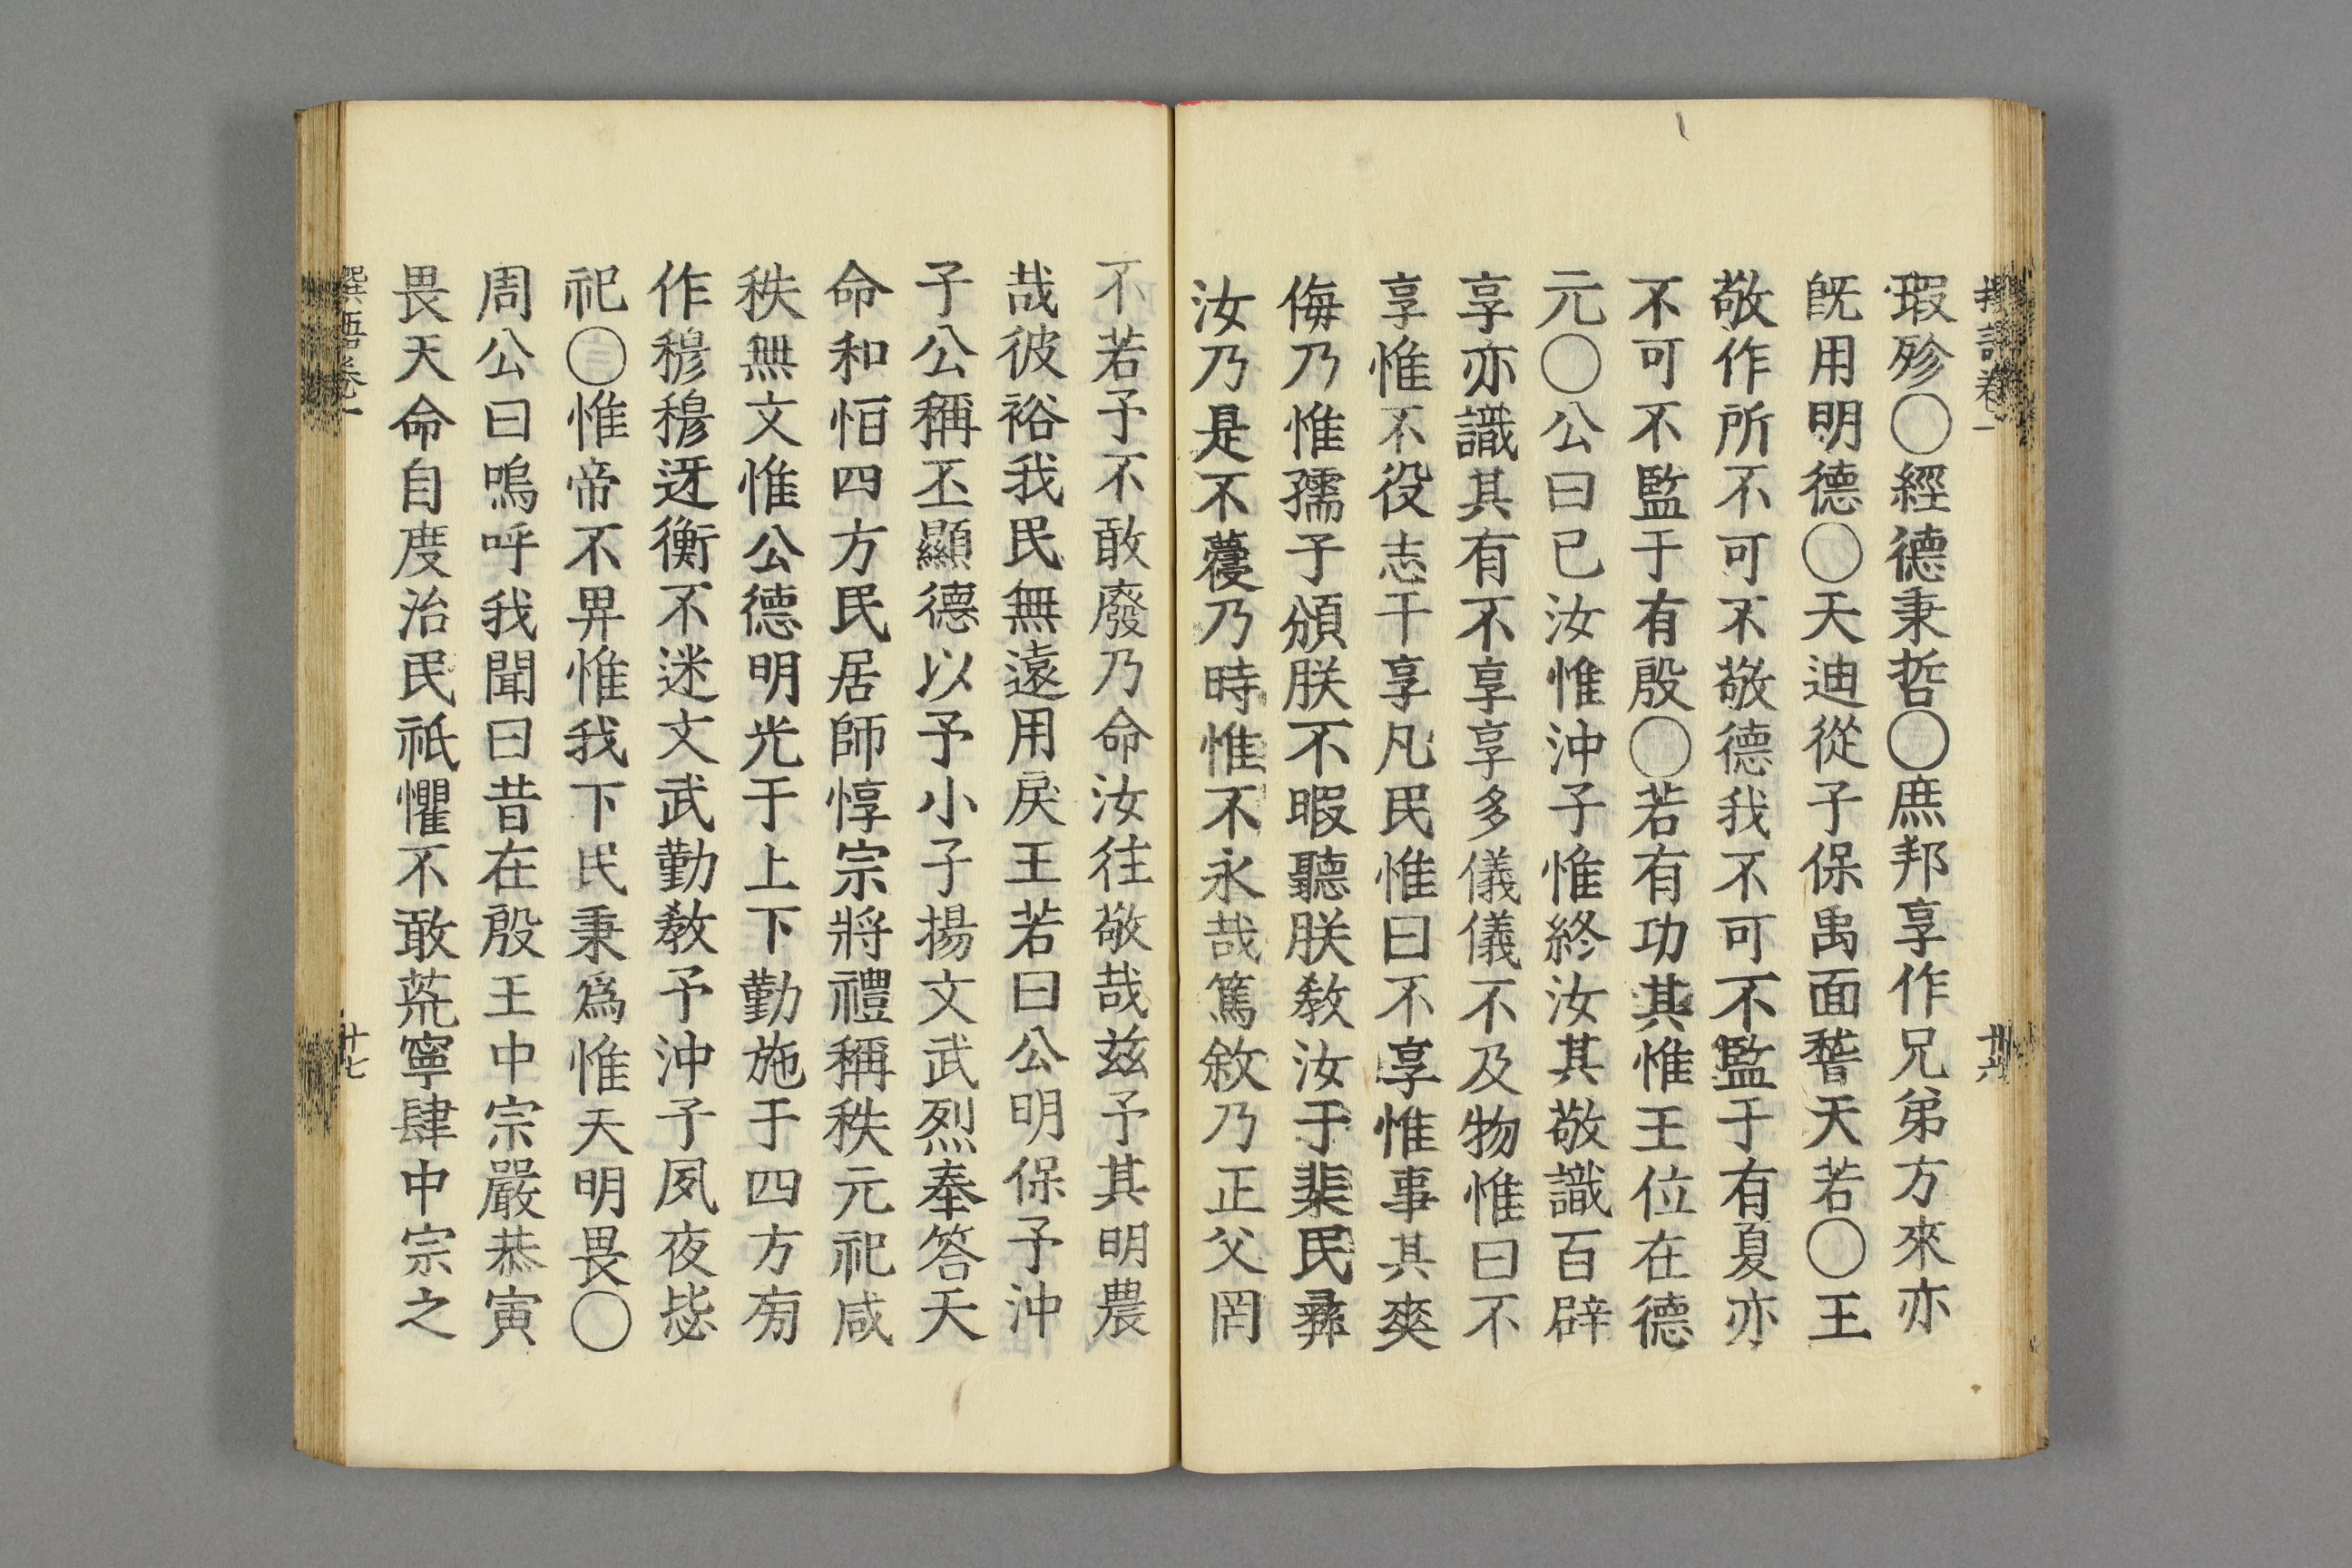 瘕殄〇經德秉哲〇庶邦享作兄弟方來亦
旣用明德〇天迪從子保禹面瞀天若〇王
敬作所不可不敬德我不可不監于有夏亦
不可不監于有殷〇若有功其惟王位在德
元〇公曰已汝惟沖子惟終汝其敬識百辟
享亦識其有不享享多儀儀不及物惟曰不
享惟不役志干享凡民惟曰不享惟事其爽
侮乃惟孺子頒朕不暇聽朕敎汝于棐民彝
汝乃是不蘉乃時惟不永哉篤敘乃正父罔
不若予不敢廢乃命汝往敬哉茲予其明農
哉彼裕我民無遠用戾王若曰公明保予沖
子公稱丕顯德以予小子揚文武烈奉答天
命和恒四方民居師惇宗將禮稱秩元祀咸
秩無文惟公德明光于上下勤施于四方旁
作穆穆迓衡不迷文武勤敎予沖子夙夜毖
祀〇惟帝不畀惟我下民秉爲惟天明畏〇
周公曰嗚呼我聞曰昔在殷王中宗嚴恭寅
畏天命自度治民祗懼不敢荒寧肆中宗之
卷一
十七